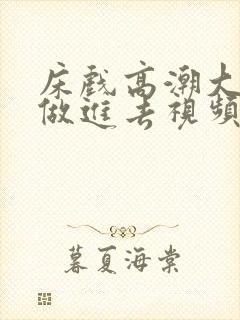 床戲高潮大
做進去視頻
暮夏海棠